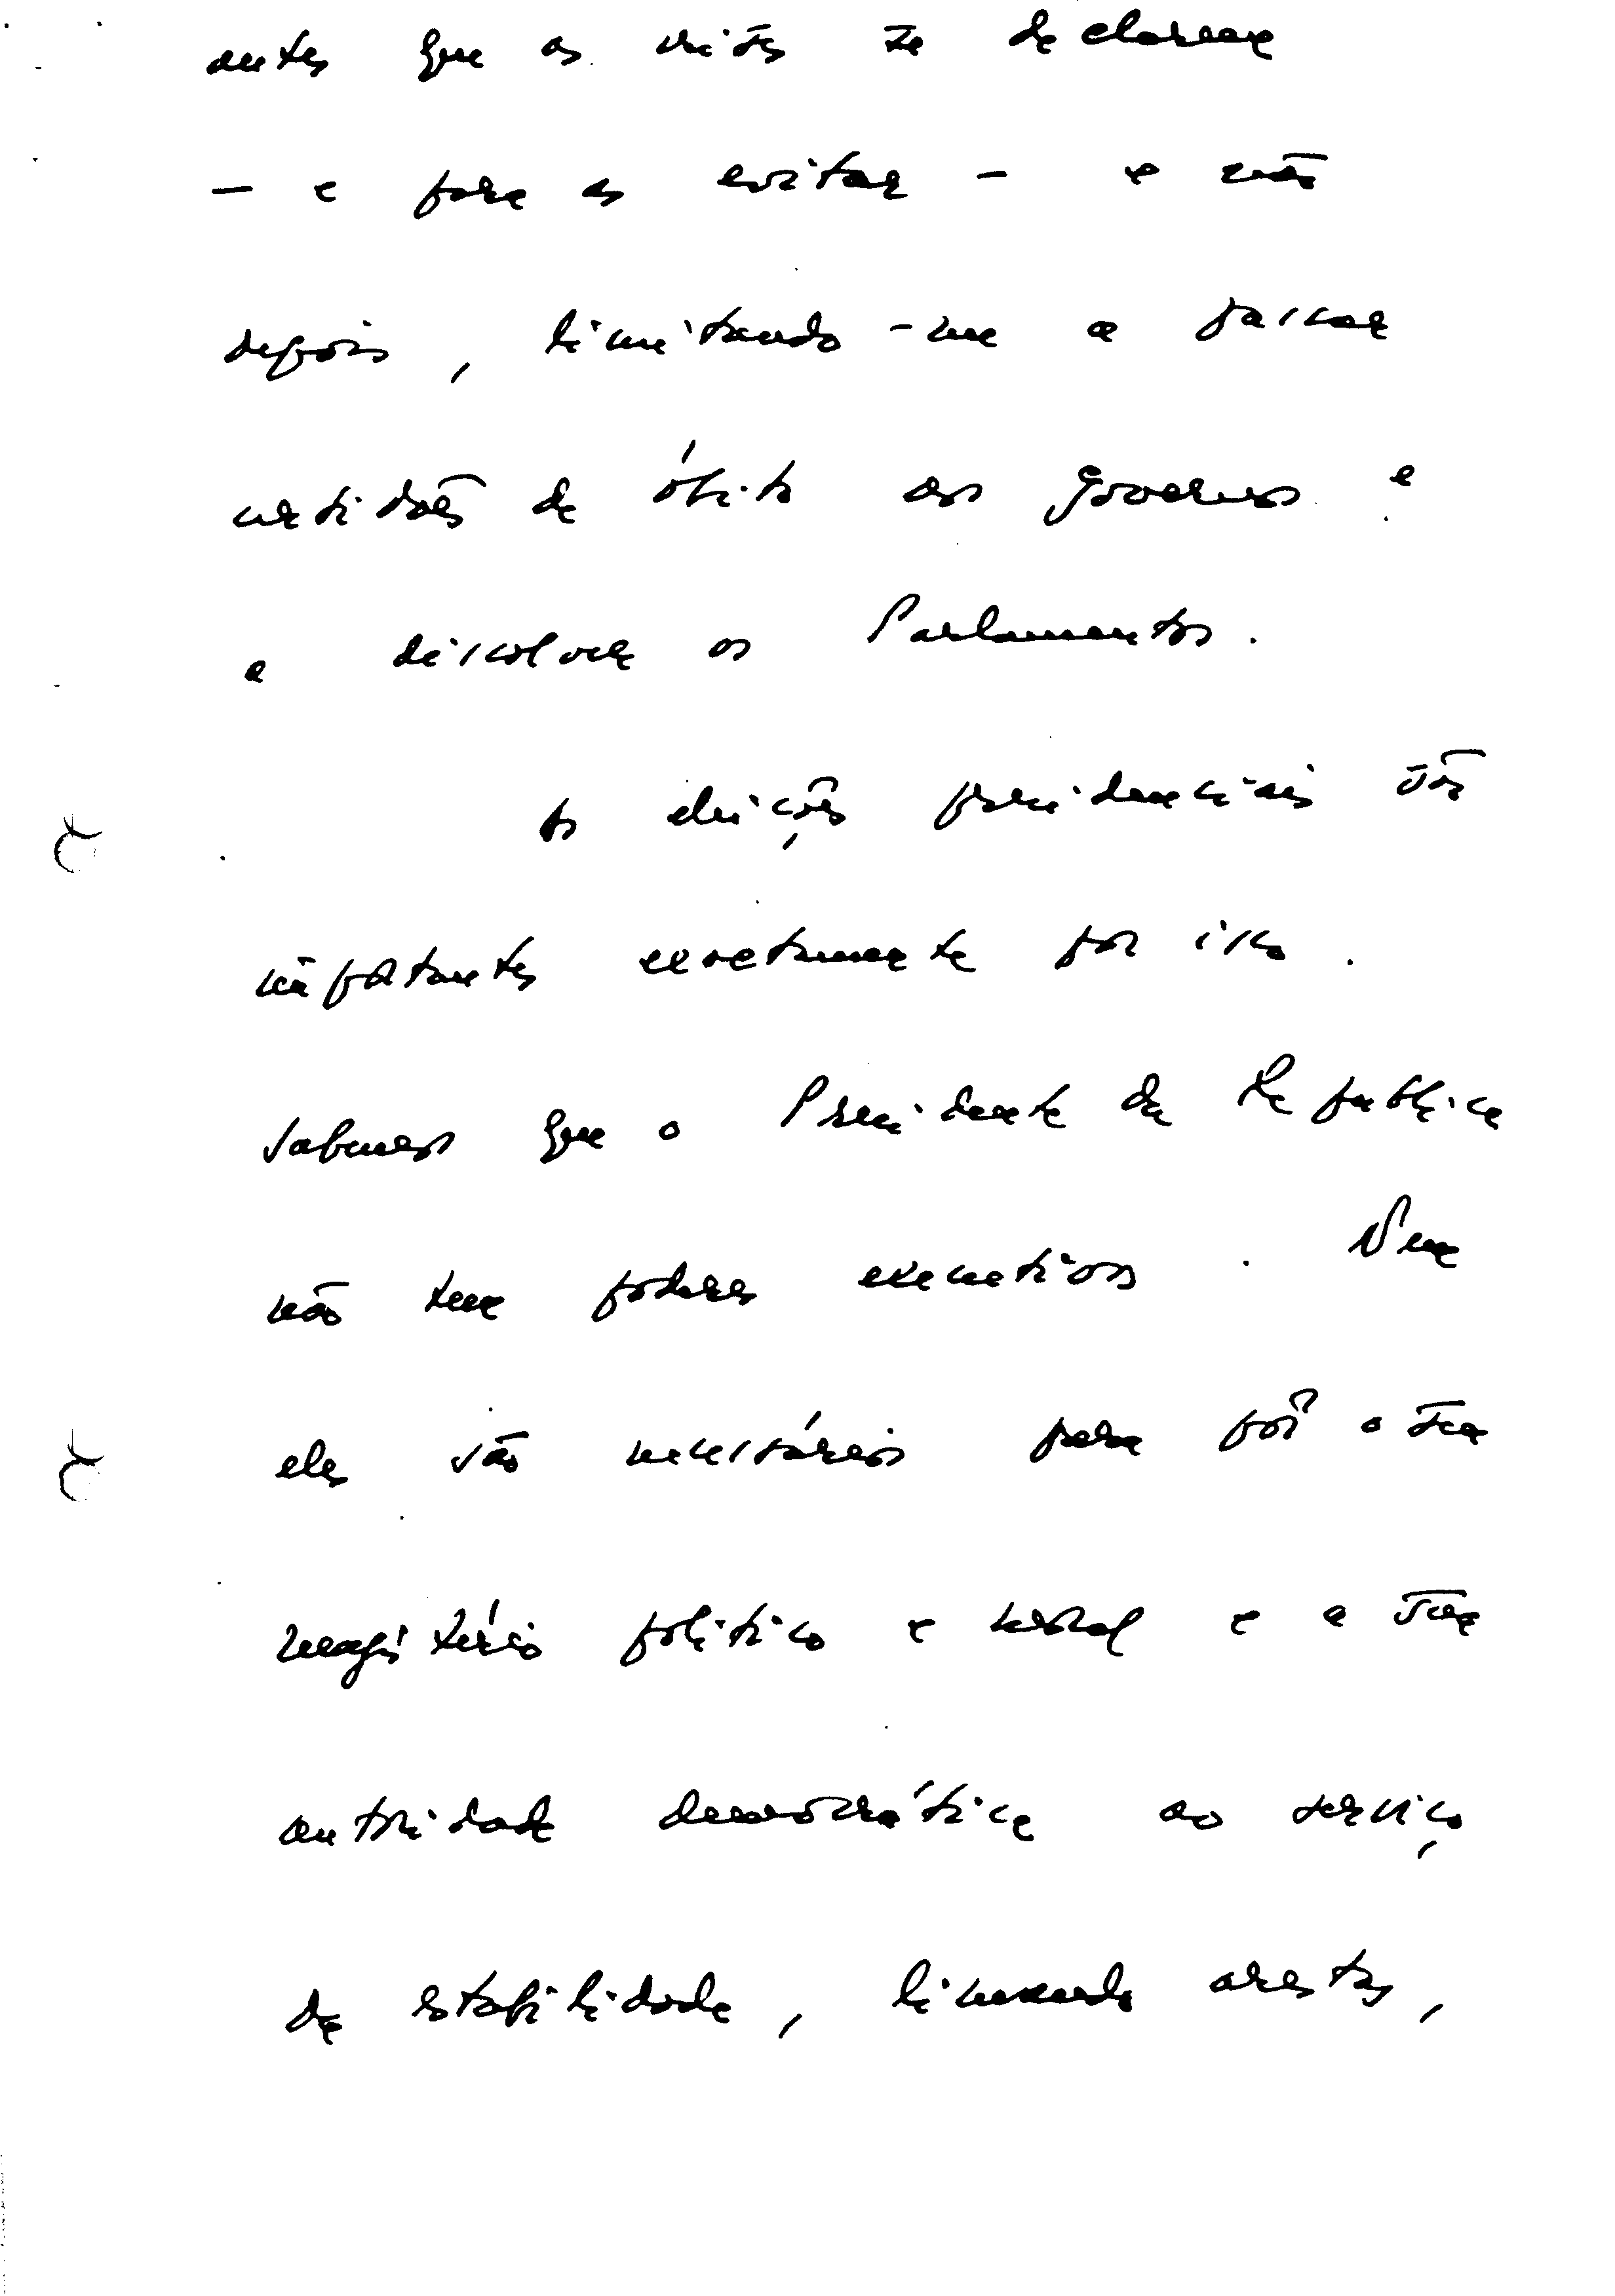 antes que as crises se declarem
— e para as evitar — e não
depois, limitando-me a passar
certidões de óbito aos governos e
a dissolver os Parlamentos.
As eleições presidenciais são
importantes exactamente por isso.
Sabemos que o Presidente da República
não tem poderes executivos. Nem
eles são necessários para pôr o seu
magistério político e moral e a sua
autoridade democrática ao serviço
da estabilidade, limando arestas,